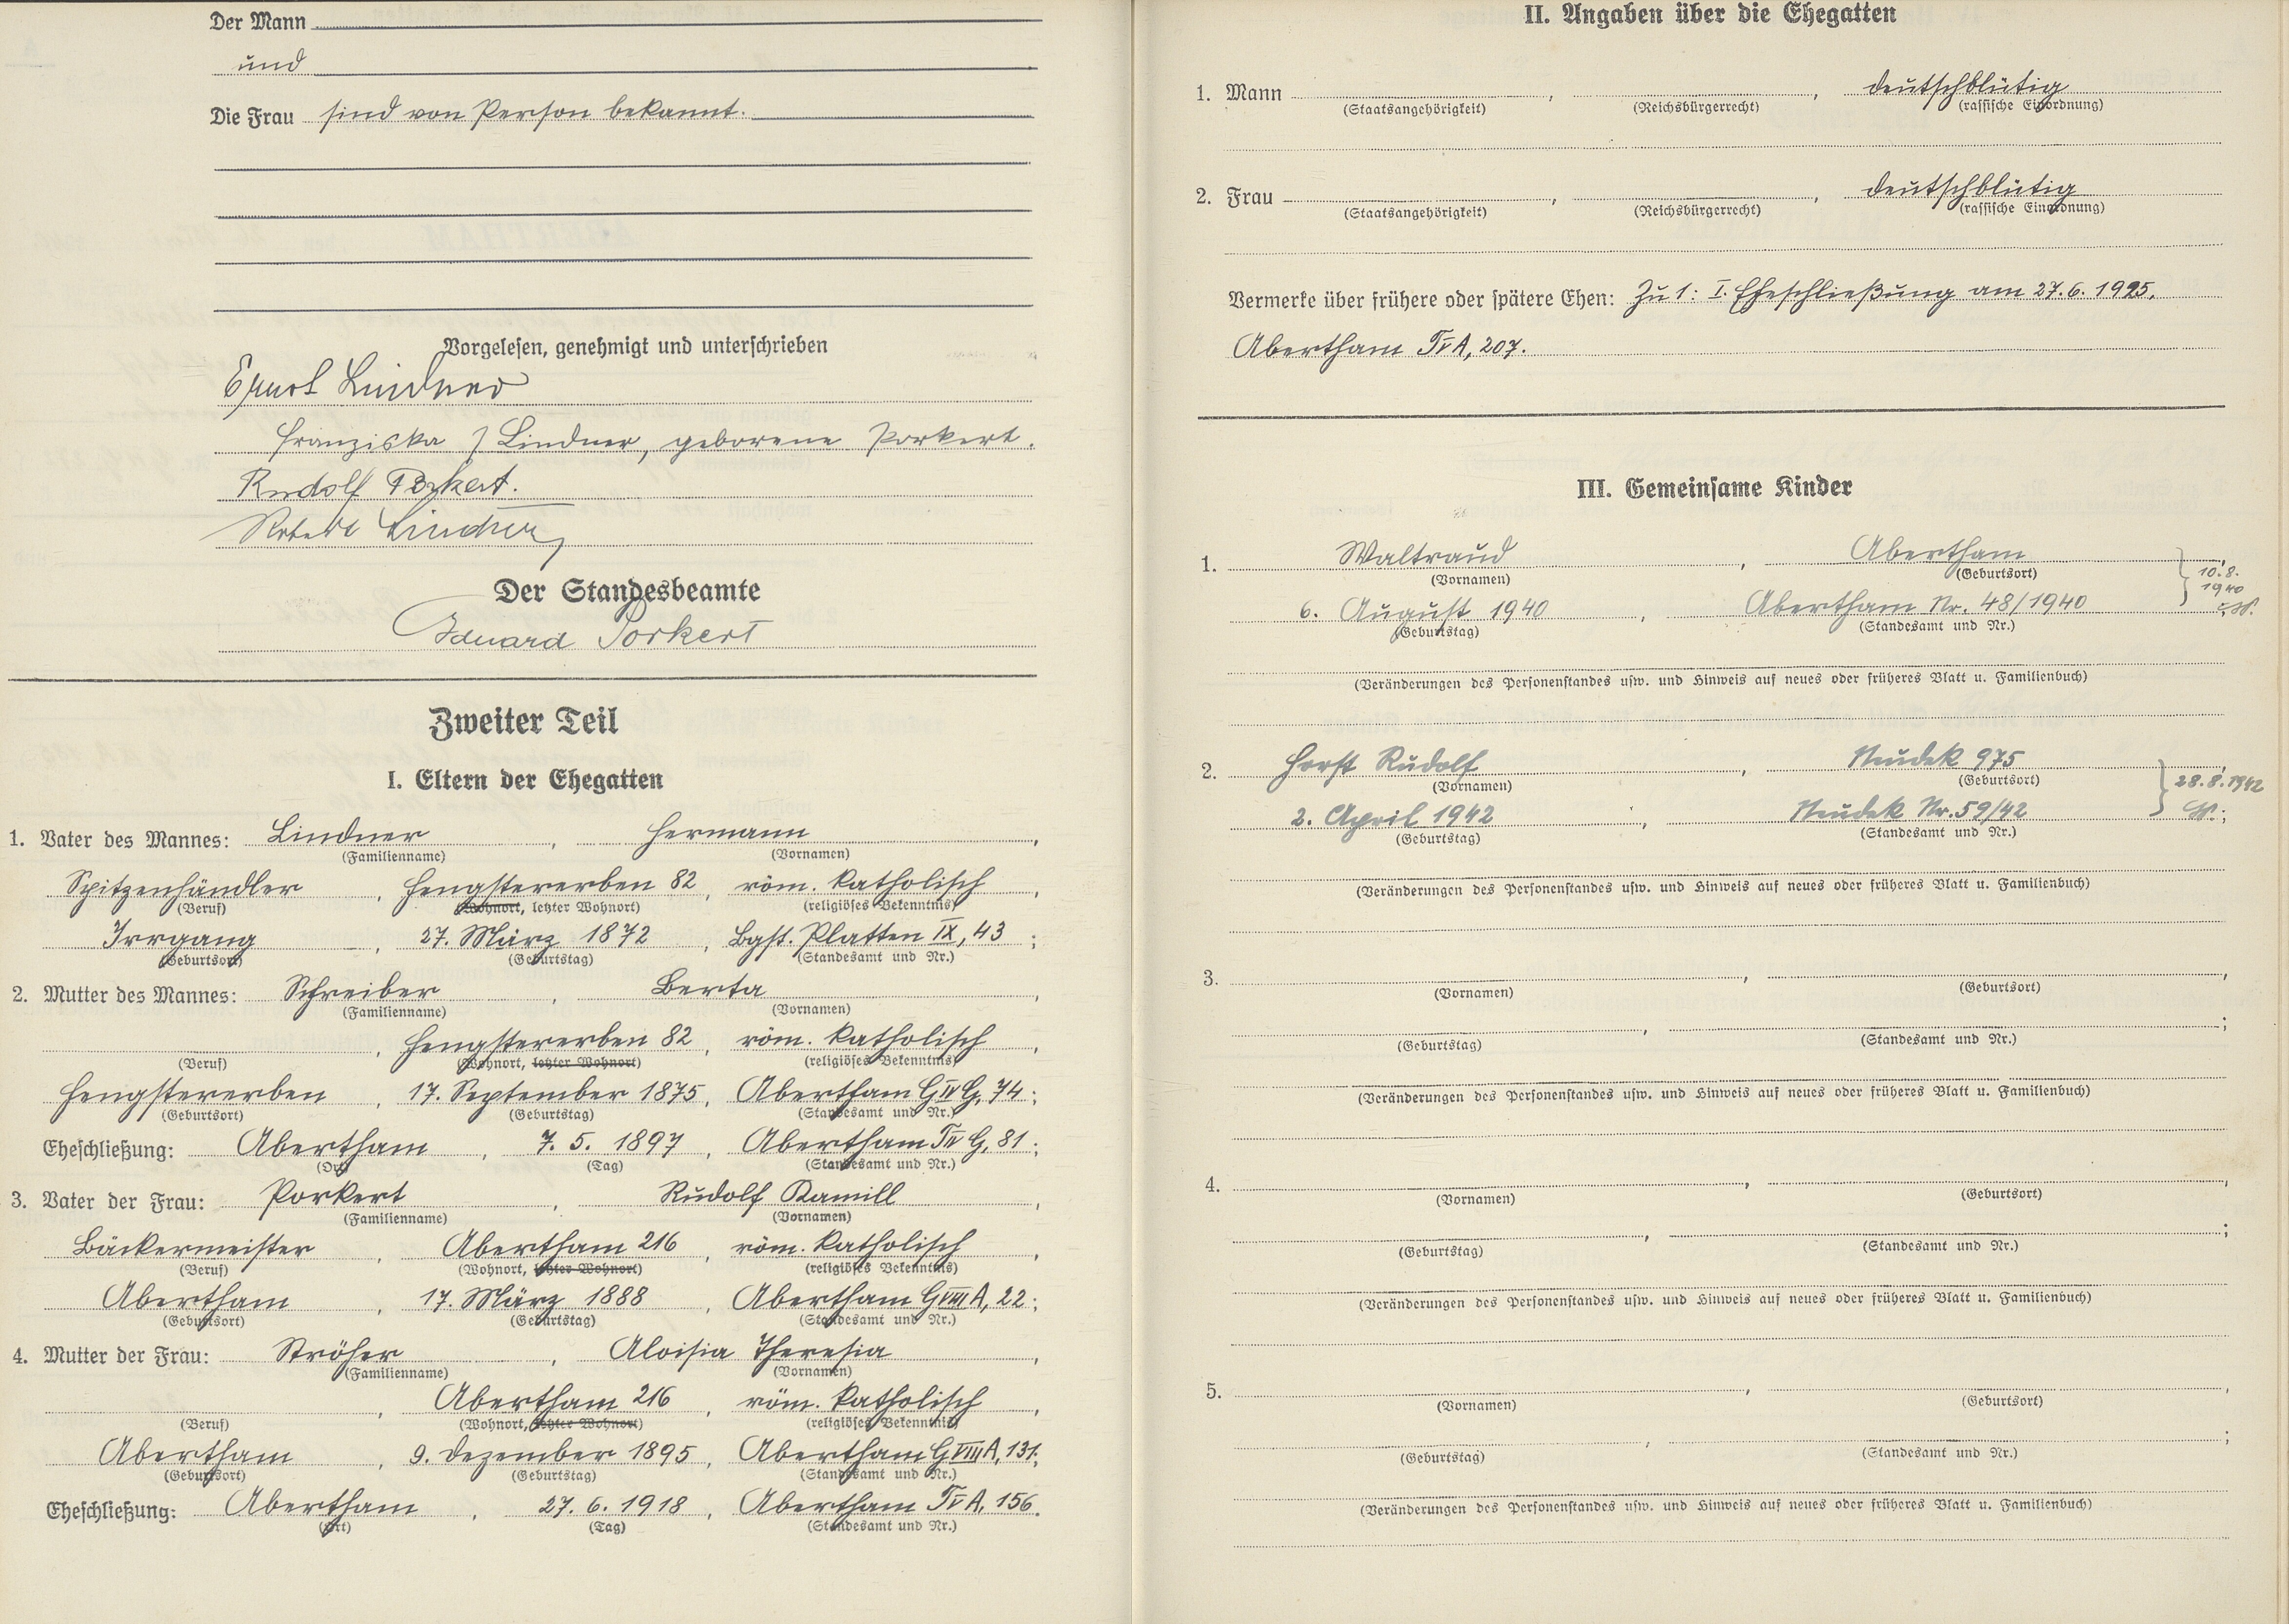 Der Mann
und
Die Frau sind von Person bekannt.
Vorgelesen, genehmigt und unterschrieben
Ernst Lindner
Franziska Lindner, geborene Porkert.
Rudolf Porkert.
Robert Lindner
Der Standesbeamte
Eduard Porkert
Zweiter Teil
I. Eltern der Ehegatten
1. Vater des Mannes: Lindner, Hermann,
(Familienname) (Vornamen)
Spitzenhändler, Hengstererben 82, röm. katholisch,
(Beruf) (Wohnort, letzter Wohnort) (religiöses Bekenntnis)
Irrgang, 27. März 1872, Bgst. Platten IX, 43;
(Geburtsort) (Geburtstag) (Standesamt und Nr.)
2. Mutter des Mannes: Schreiber, Berta,
(Familienname) (Vornamen)
, Hengstererben 82, röm. katholisch,
(Beruf) (Wohnort, letzter Wohnort) (religiöses Bekenntnis)
Hengstererben, 17. September 1875, Abertham G IV G, 74;
(Geburtsort) (Geburtstag) (Standesamt und Nr.)
Eheschließung: Abertham, 7. 5. 1897, Abertham T IV G, 81;
(Ort) (Tag) (Standesamt und Nr.)
3. Vater der Frau: Porkert, Rudolf Kamill,
(Familienname) (Vornamen)
Bäckermeister, Abertham 216, röm. katholisch,
(Beruf) (Wohnort, letzter Wohnort) (religiöses Bekenntnis)
Abertham, 17. März 1888, Abertham G VIII A, 22;
(Geburtsort) (Geburtstag) (Standesamt und Nr.)
4. Mutter der Frau: Ströher, Aloisia Theresia,
(Familienname) (Vornamen)
, Abertham 216, röm. katholisch,
(Beruf) (Wohnort, letzter Wohnort) (religiöses Bekenntnis)
Abertham, 9. Dezember 1895, Abertham G VIII A, 131;
(Geburtsort) (Geburtstag) (Standesamt und Nr.)
Eheschließung: Abertham, 27. 6. 1918, Abertham T V A, 156.
(Ort) (Tag) (Standesamt und Nr.)
II. Angaben über die Ehegatten
1. Mann , , deutschblütig
(Staatsangehörigkeit) (Reichsbürgerrecht) (rassische Einordnung)
2. Frau , , deutschblütig
(Staatsangehörigkeit) (Reichsbürgerrecht) (rassische Einordnung)
Vermerke über frühere oder spätere Ehen: Zu 1: I. Eheschließung am 27. 6. 1925,
Abertham T V A, 207.
III. Gemeinsame Kinder
1. Waltraud, Abertham,
(Vornamen) (Geburtsort) 10. 8.
6. August 1940, Abertham Nr. 48/1940 1940
(Geburtstag) (Standesamt und Nr.)
(Veränderungen des Personenstandes usw. und Hinweis auf neues oder früheres Blatt u. Familienbuch)
2. Horst Rudolf, Neudek 975,
(Vornamen) (Geburtsort) 28. 8. 1942
2. April 1942, Neudek Nr. 59/42;
(Geburtstag) (Standesamt und Nr.)
(Veränderungen des Personenstandes usw. und Hinweis auf neues oder früheres Blatt u. Familienbuch)
3. , ,
(Vornamen) (Geburtsort)
, ;
(Geburtstag) (Standesamt und Nr.)
(Veränderungen des Personenstandes usw. und Hinweis auf neues oder früheres Blatt u. Familienbuch)
4. , ,
(Vornamen) (Geburtsort)
, ;
(Geburtstag) (Standesamt und Nr.)
(Veränderungen des Personenstandes usw. und Hinweis auf neues oder früheres Blatt u. Familienbuch)
5. , ,
(Vornamen) (Geburtsort)
, ;
(Geburtstag) (Standesamt und Nr.)
(Veränderungen des Personenstandes usw. und Hinweis auf neues oder früheres Blatt u. Familienbuch)